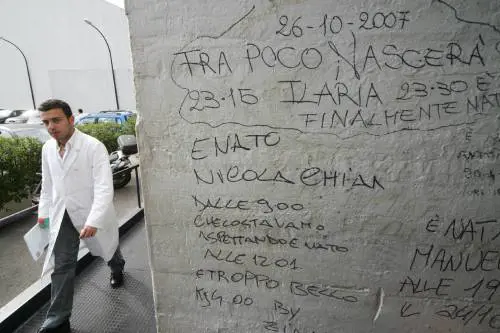 26-10-2007
FRA POCO NASCERÀ
23:15 ILARIA 23:30 È
FINALMENTE NAT
E NATO
NICOLA CHIAR
DALLE 9.00
CHE LO STAVAMO
ASPETTANDO E NATO
ALLE 12.01
E TROPPO BELLO
BY
È NATA
MANUEL
ALLE 19